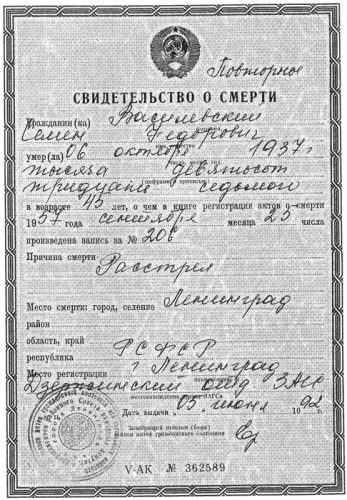 Повторное
СВИДЕТЕЛЬСТВО О СМЕРТИ
Гражданин(ка) Василевский
Семен Федорович
умер(ла) 06 октября 1937 г.
тысяча девятьсот
тридцать седьмого
в возрасте 45 лет, о чем в книге регистрации актов о смерти
1957 года сентября месяца 25 числа
произведена запись за № 206
Причина смерти
Расстрел
Место смерти: город, селение Ленинград
район
область, край
республика РСФСР
Место регистрации г. Ленинград
Дзержинский отд. ЗАГС
Дата выдачи 03 июня 1992 г.
V-АК № 362589